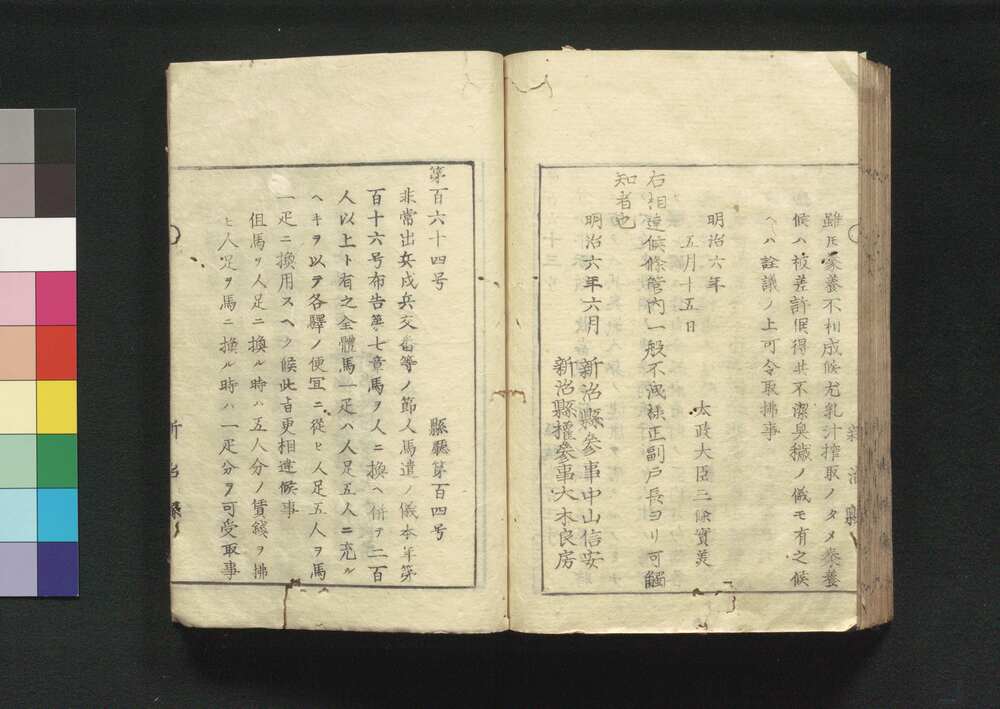 雖𪜈豢養不相成候尤乳汁搾取ノタメ豢養
候ハ被差許候得共不潔臭穢ノ儀モ有之候
ヘハ詮議ノ上可令取拂事
明治六年
五月十五日
太政大臣三條實美
右相達候條管内一般不洩様正副戸長ヨリ可觸
知者也
明治六年六月
新治縣參事中山信安
新治縣權參事大木良房
第百六十四号
縣廳第百四号
非常出兵戍兵交番等ノ節人馬遣ノ儀本年第
百十六号布告第七章馬ヲ人ニ換ヘ併テ二百
人以上ト有之全體馬一疋ハ人足五人ニ充ル
ヘキヲ以テ各驛ノ便宜ニ從ヒ人足五人ヲ馬
一疋ニ換用スヘク候此旨更相達候事
但馬ヲ人足ニ換ル時ハ五人分ノ賃錢ヲ拂
ヒ人足ヲ馬ニ換ル時ハ一疋分ヲ可受取事
新治縣